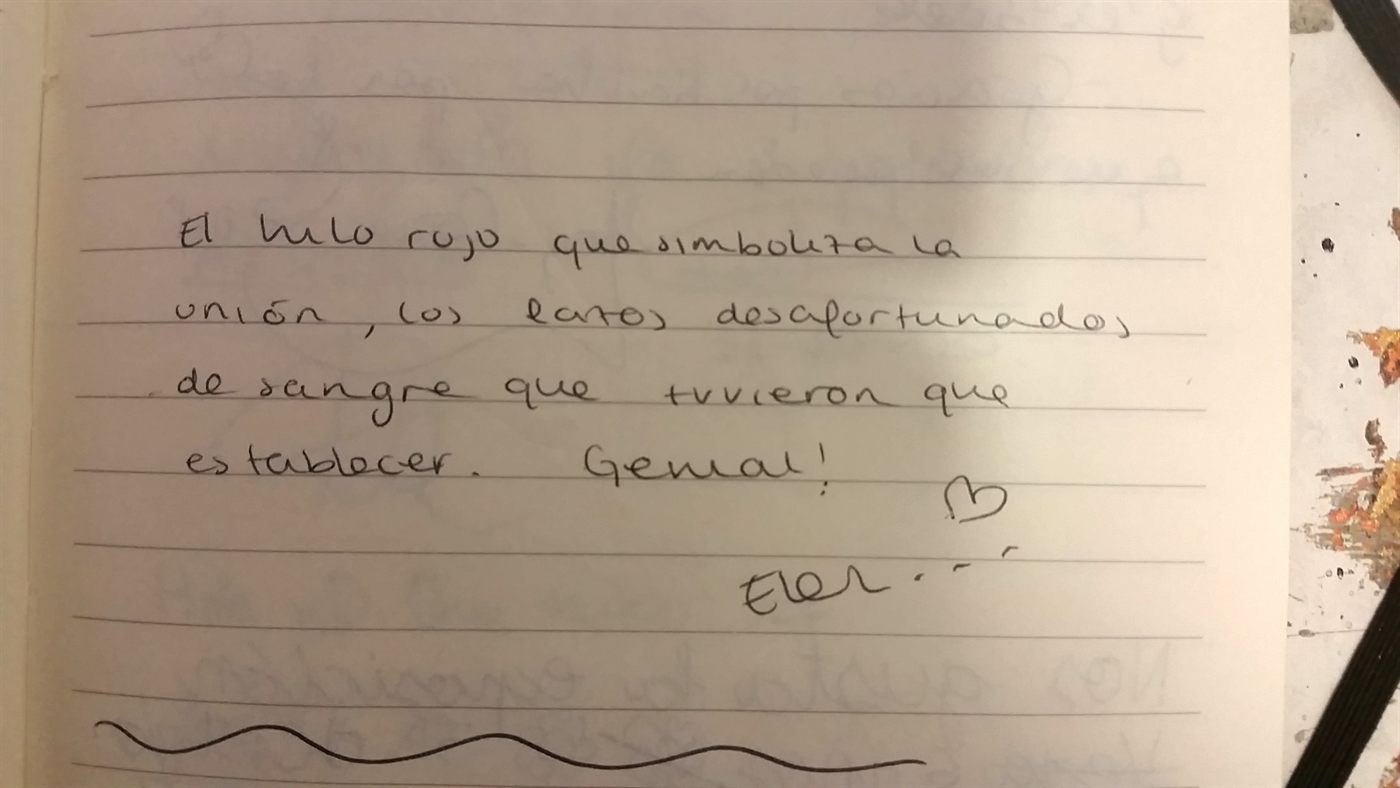 El hilo rojo que simboliza la
unión, los lazos desafortunados
de sangre que tuvieron que
establecer. Genial!